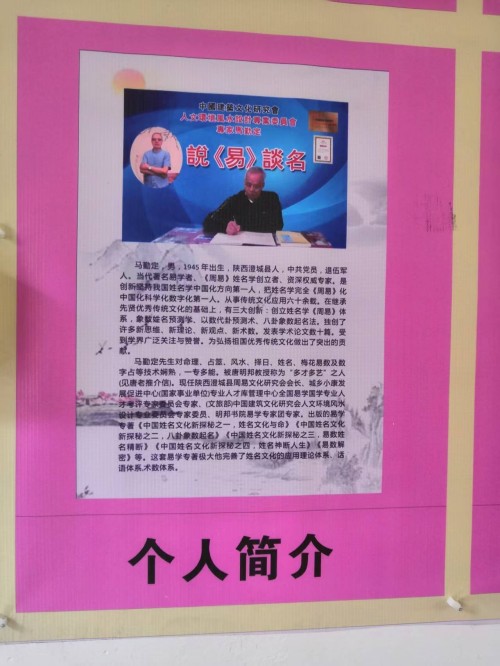 中國建築文化研究會
人文環境風水設計專業委員會
專家馬勤定
說《易》談名
马勤定，男，1945年出生，陕西澄城县人，中共党员，退伍军
人。当代著名易学者、《周易》姓名学创立者、资深权威专家。是
创新坚持我国姓名学中国化方向第一人，把姓名学完全《周易》化
中国化科学化数字化第一人。从事传统文化应用六十余载。在继承
先贤优秀传统文化的基础上，有三大创新：创立姓名学《周易》体
系，象数姓名预测学、以数代卦预测术、八卦象数起名法。独创了
许多新思维、新理论、新观点、新术数。发表学术论文数十篇。受
到学界广泛关注与赞誉。为弘扬祖国优秀传统文化做出了突出的贡
献。
马勤定先生对命理、占筮、风水、择日、姓名、梅花易数及数
字占等技术娴熟，一专多能。被唐明邦教授称为“多才多艺”之人
(见唐老推介信)。现任陕西澄城县周易文化研究会会长、城乡小康发
展促进中心(国家事业单位)专业人才库管理中心全国易学国学专业人
才考评专家委员会专家、(文旅部)中国建筑文化研究会人文环境风水
设计专业委员会专家委员、明邦书院易学专家团专家。出版的易学
专著《中国姓名文化新探秘之一，姓名文化与命》《中国姓名文化
新探秘之二，八卦象数起名》《中国姓名文化新探秘之三，易数姓
名精断》《中国姓名文化新探秘之四，姓名神断人生》《易数解
密》等。这套易学专著极大地完善了姓名文化的应用理论体系、话
语体系,术数体系。
个人简介